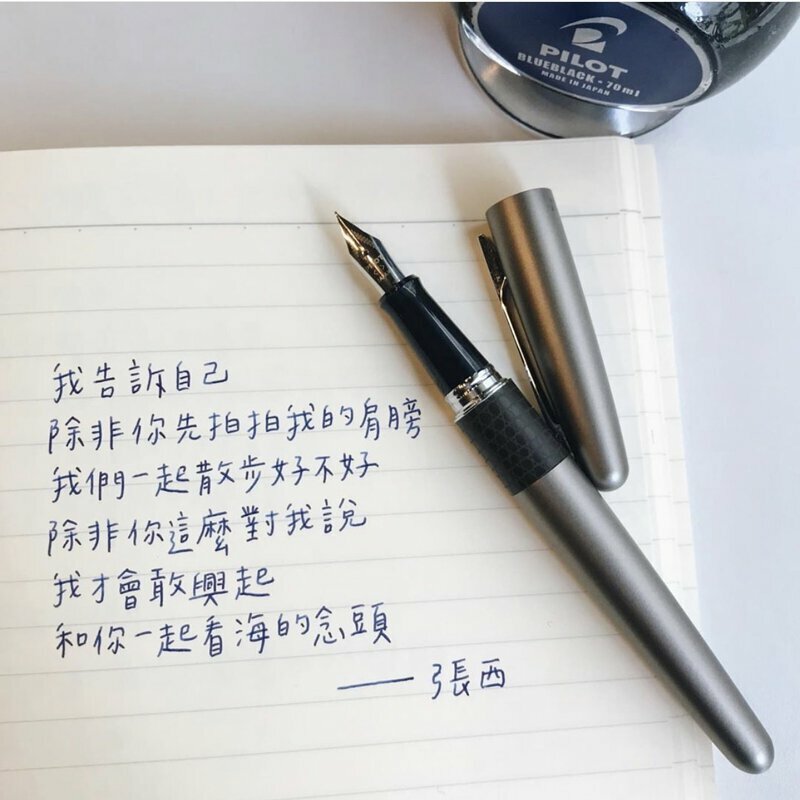 PILOT
BLUEBLACK・70ml
MADE IN JAPAN
我告訴自己
除非你先拍拍我的肩膀
我們一起散步好不好
除非你這麼對我說
我才會敢興起
和你一起看海的念頭
——張西